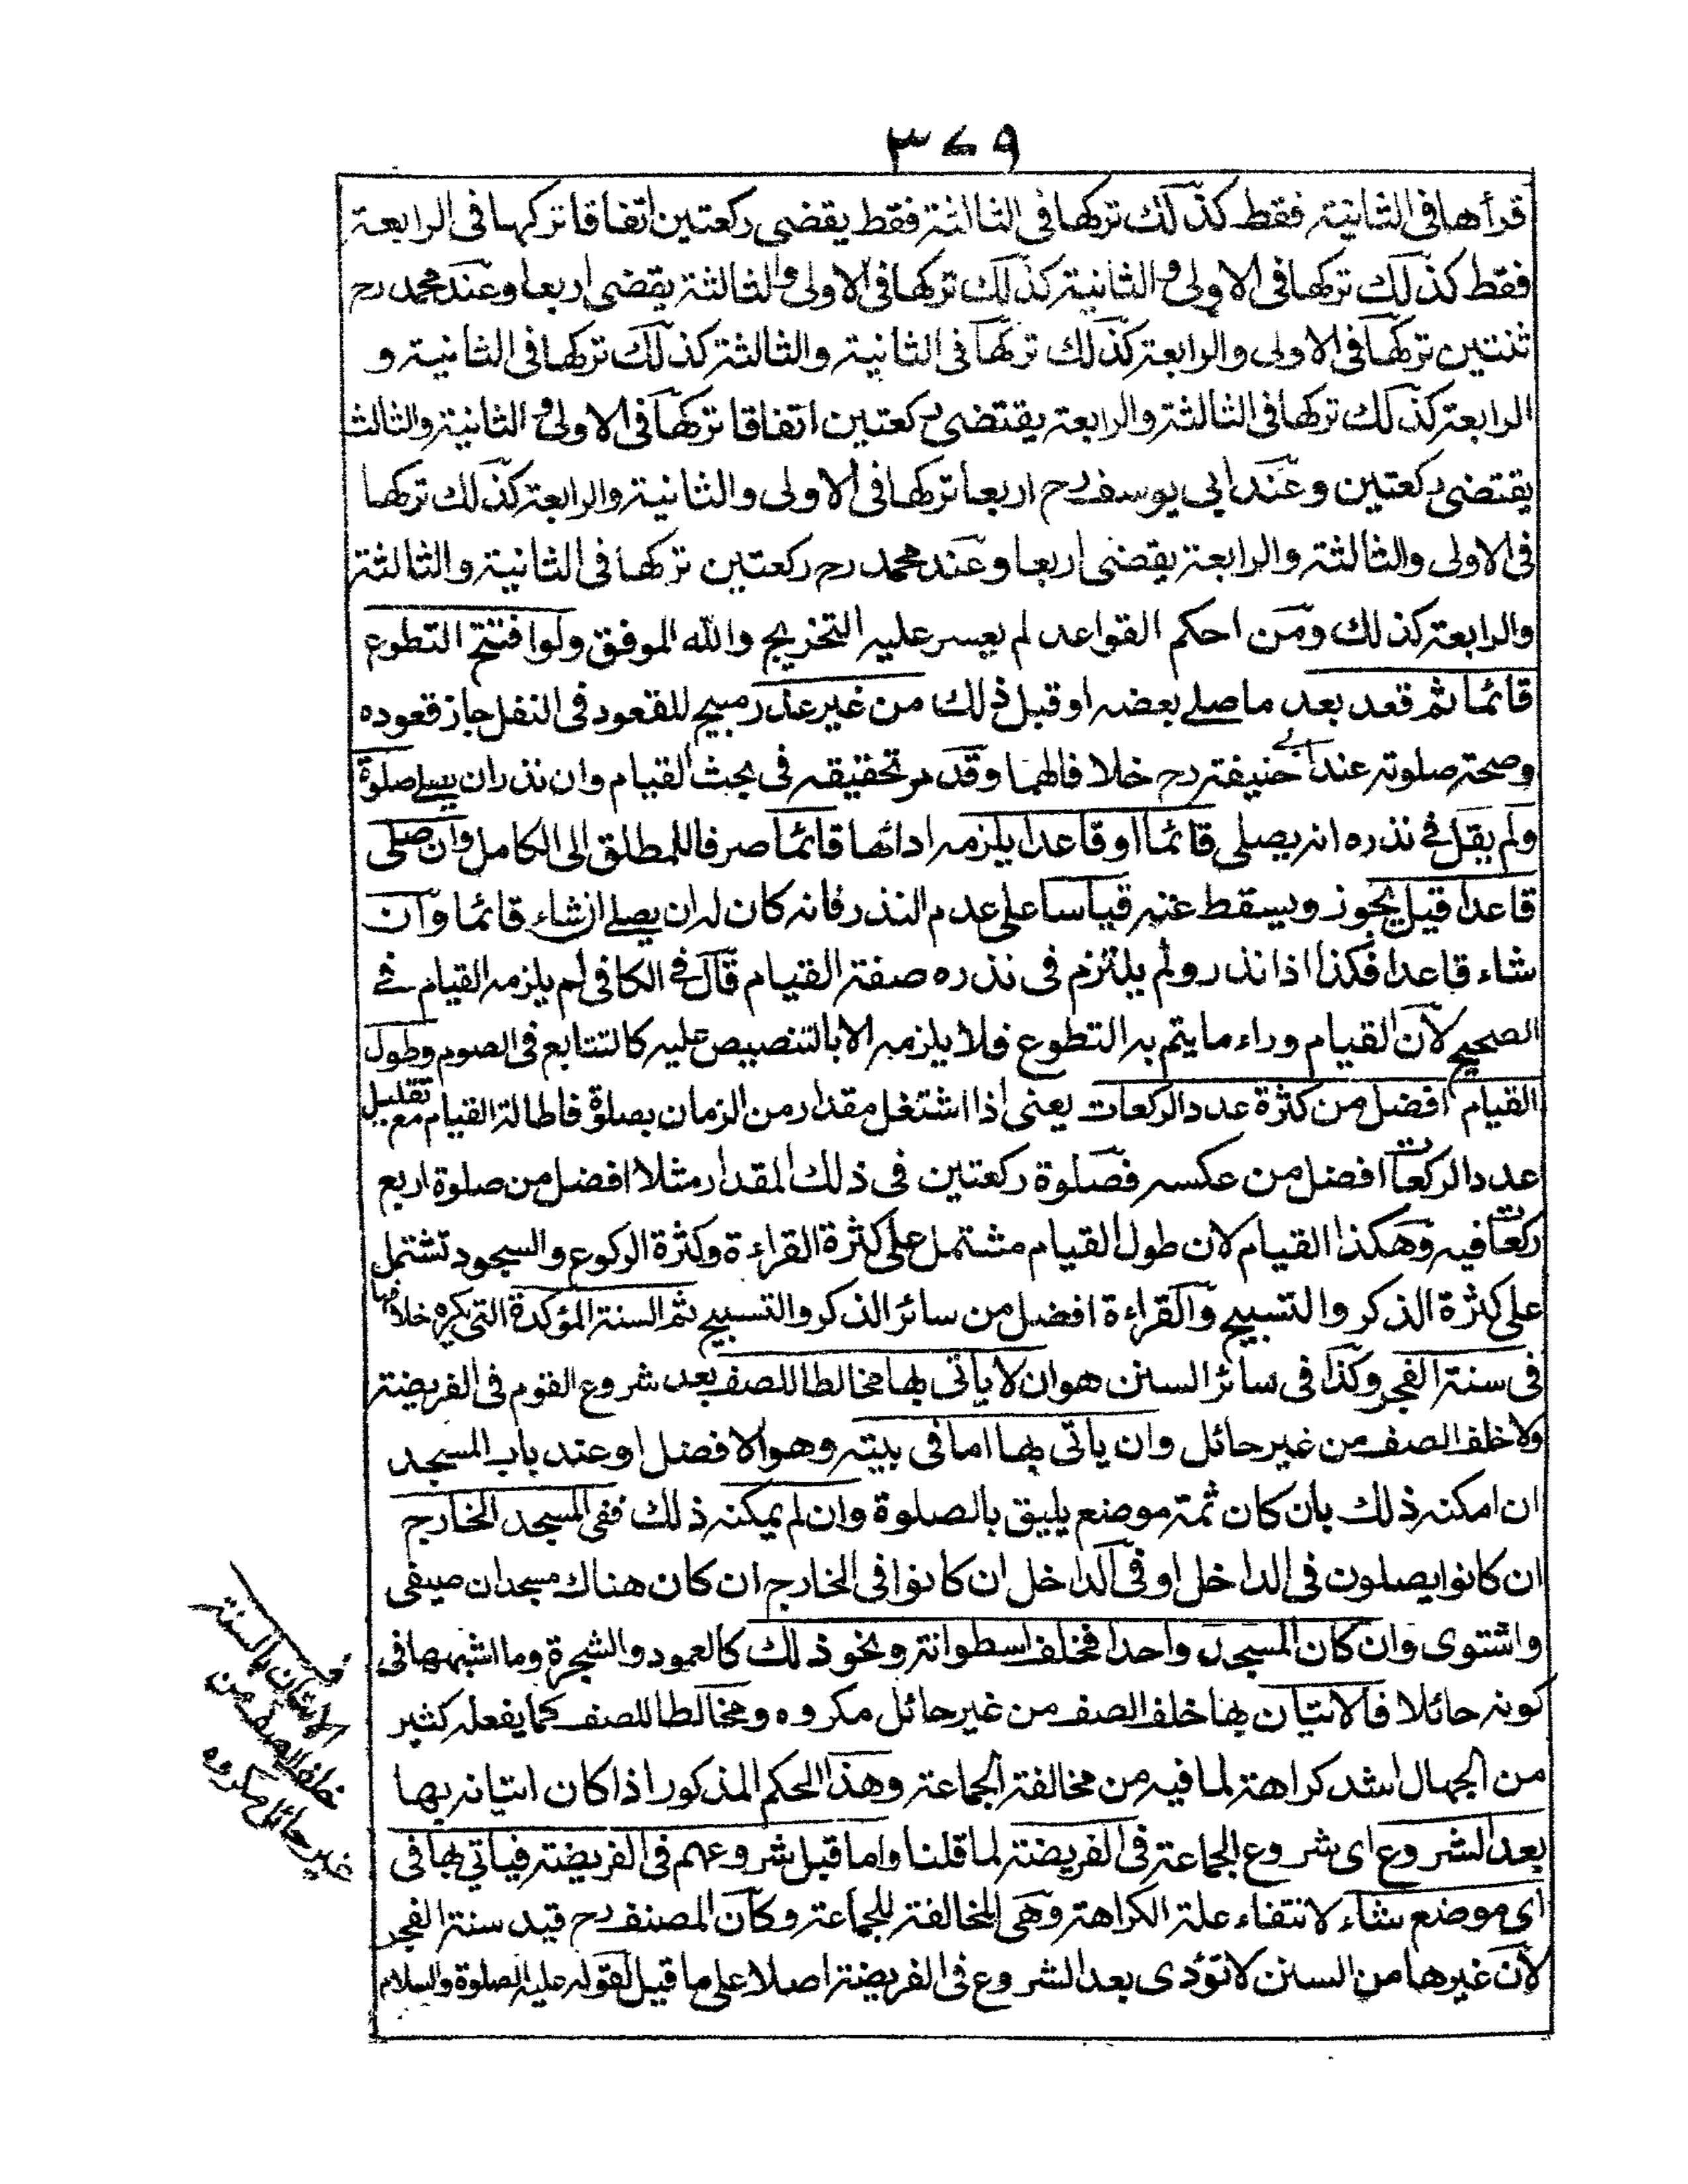 ٣٧٩
قرأها فى الثانية فقط كذلك تركها فى الثالثة فقط يقضى ركعتين اتفاقا تركها فى الرابعة
فقط كذلك تركها فى الاولى والثانية كذلك تركها فى الاولى والثالثة يقضى اربعا وعند محمد رح
ثنتين تركها فى الاولى والرابعة كذلك تركها فى الثانية والثالثة كذلك تركها فى الثانية و
الرابعة كذلك تركها فى الثالثة والرابعة يقتضى ركعتين اتفاقا تركها فى الاولى والثانية والثالث
يقتضى ركعتين وعند ابى يوسف رح اربعا تركها فى الاولى والثانية والرابعة كذلك تركها
فى الاولى والثالثة والرابعة يقضى اربعا وعند محمد رح ركعتين تركها فى الثانية والثالثة
والرابعة كذلك ومن احكم القواعد لم يعسر عليه التخريج والله الموفق ولو افتتح التطوع
قائما ثم قعد بعد ما صلے بعضه او قبل ذلك من غير عذر مبيح للقعود فى النفل جاز قعوده
وصحة صلوته عند ابے حنيفة رح خلافا لهما وقد مر تحقيقه فى بحث القيام وان نذر ان يصلے صلوة
ولم يقل فے نذره انه يصلى قائما او قاعدا يلزمه ادائها قائما صرفا للمطلق الى الكامل وان صلى
قاعدا قيل يجوز ويسقط عنه قياسا على عدم النذر فانه كان له ان يصلے ان شاء قائما وان
شاء قاعدا فكذا اذا نذر ولم يلتزم فى نذره صفة القيام قال فے الكافى لم يلزمه القيام فے
الصحيح لان القيام وراء ما يتم به التطوع فلا يلزمه الا بالتنصيص عليه كالتتابع فى الصوم وطول
القيام افضل من كثرة عدد الركعات يعنى اذا اشتغل مقدار من الزمان بصلوة فاطالة القيام مع تقليل
عدد الركعات افضل من عكسه فصلوة ركعتين فى ذلك المقدار مثلا افضل من صلوة اربع
ركعات فيه وهكذا القيام لان طول القيام مشتمل على كثرة القراءة وكثرة الركوع والسجود تشتمل
على كثرة الذكر والتسبيح والقراءة افضل من سائر الذكر والتسبيح ثم السنة المؤكدة التى يكره خلافها
فى سنة الفجر وكذا فى سائر السنن هو ان لا ياتى بها مخالطا للصف بعد شروع القوم فى الفريضة
ولا خلف الصف من غير حائل وان ياتى بها اما فى بيته وهو الافضل او عند باب المسجد
ان امكنه ذلك بان كان ثمة موضع يليق بالصلوة وان لم يمكنه ذلك ففى المسجد الخارج
ان كانوا يصلون فى الداخل او فى الداخل ان كانوا فى الخارج ان كان هناك مسجدان صيفى
واشتوى وان كان المسجد واحدا فخلف اسطوانة ونحو ذلك كالعمود والشجرة وما اشبهها فى
كونه حائلا فالاتيان بها خلف الصف من غير حائل مكروه ومخالطا للصف كما يفعله كثير
من الجهال اشد كراهة لما فيه من مخالفة الجماعة وهذا الحكم المذكور اذا كان اتيانه بها
بعد الشروع اى شروع الجماعة فى الفريضة لما قلنا واما قبل شروعهم فى الفريضة فياتي بها فى
اى موضع شاء لانتفاء علة الكراهة وهى المخالفة للجماعة وكان المصنف رح قيد سنة الفجر
لان غيرها من السنن لا تؤدى بعد الشروع فى الفريضة اصلا على ما قيل لقوله عليه الصلوة والسلام
الاتيان بالسنة
خلف الصف من
غير حائل مكروه